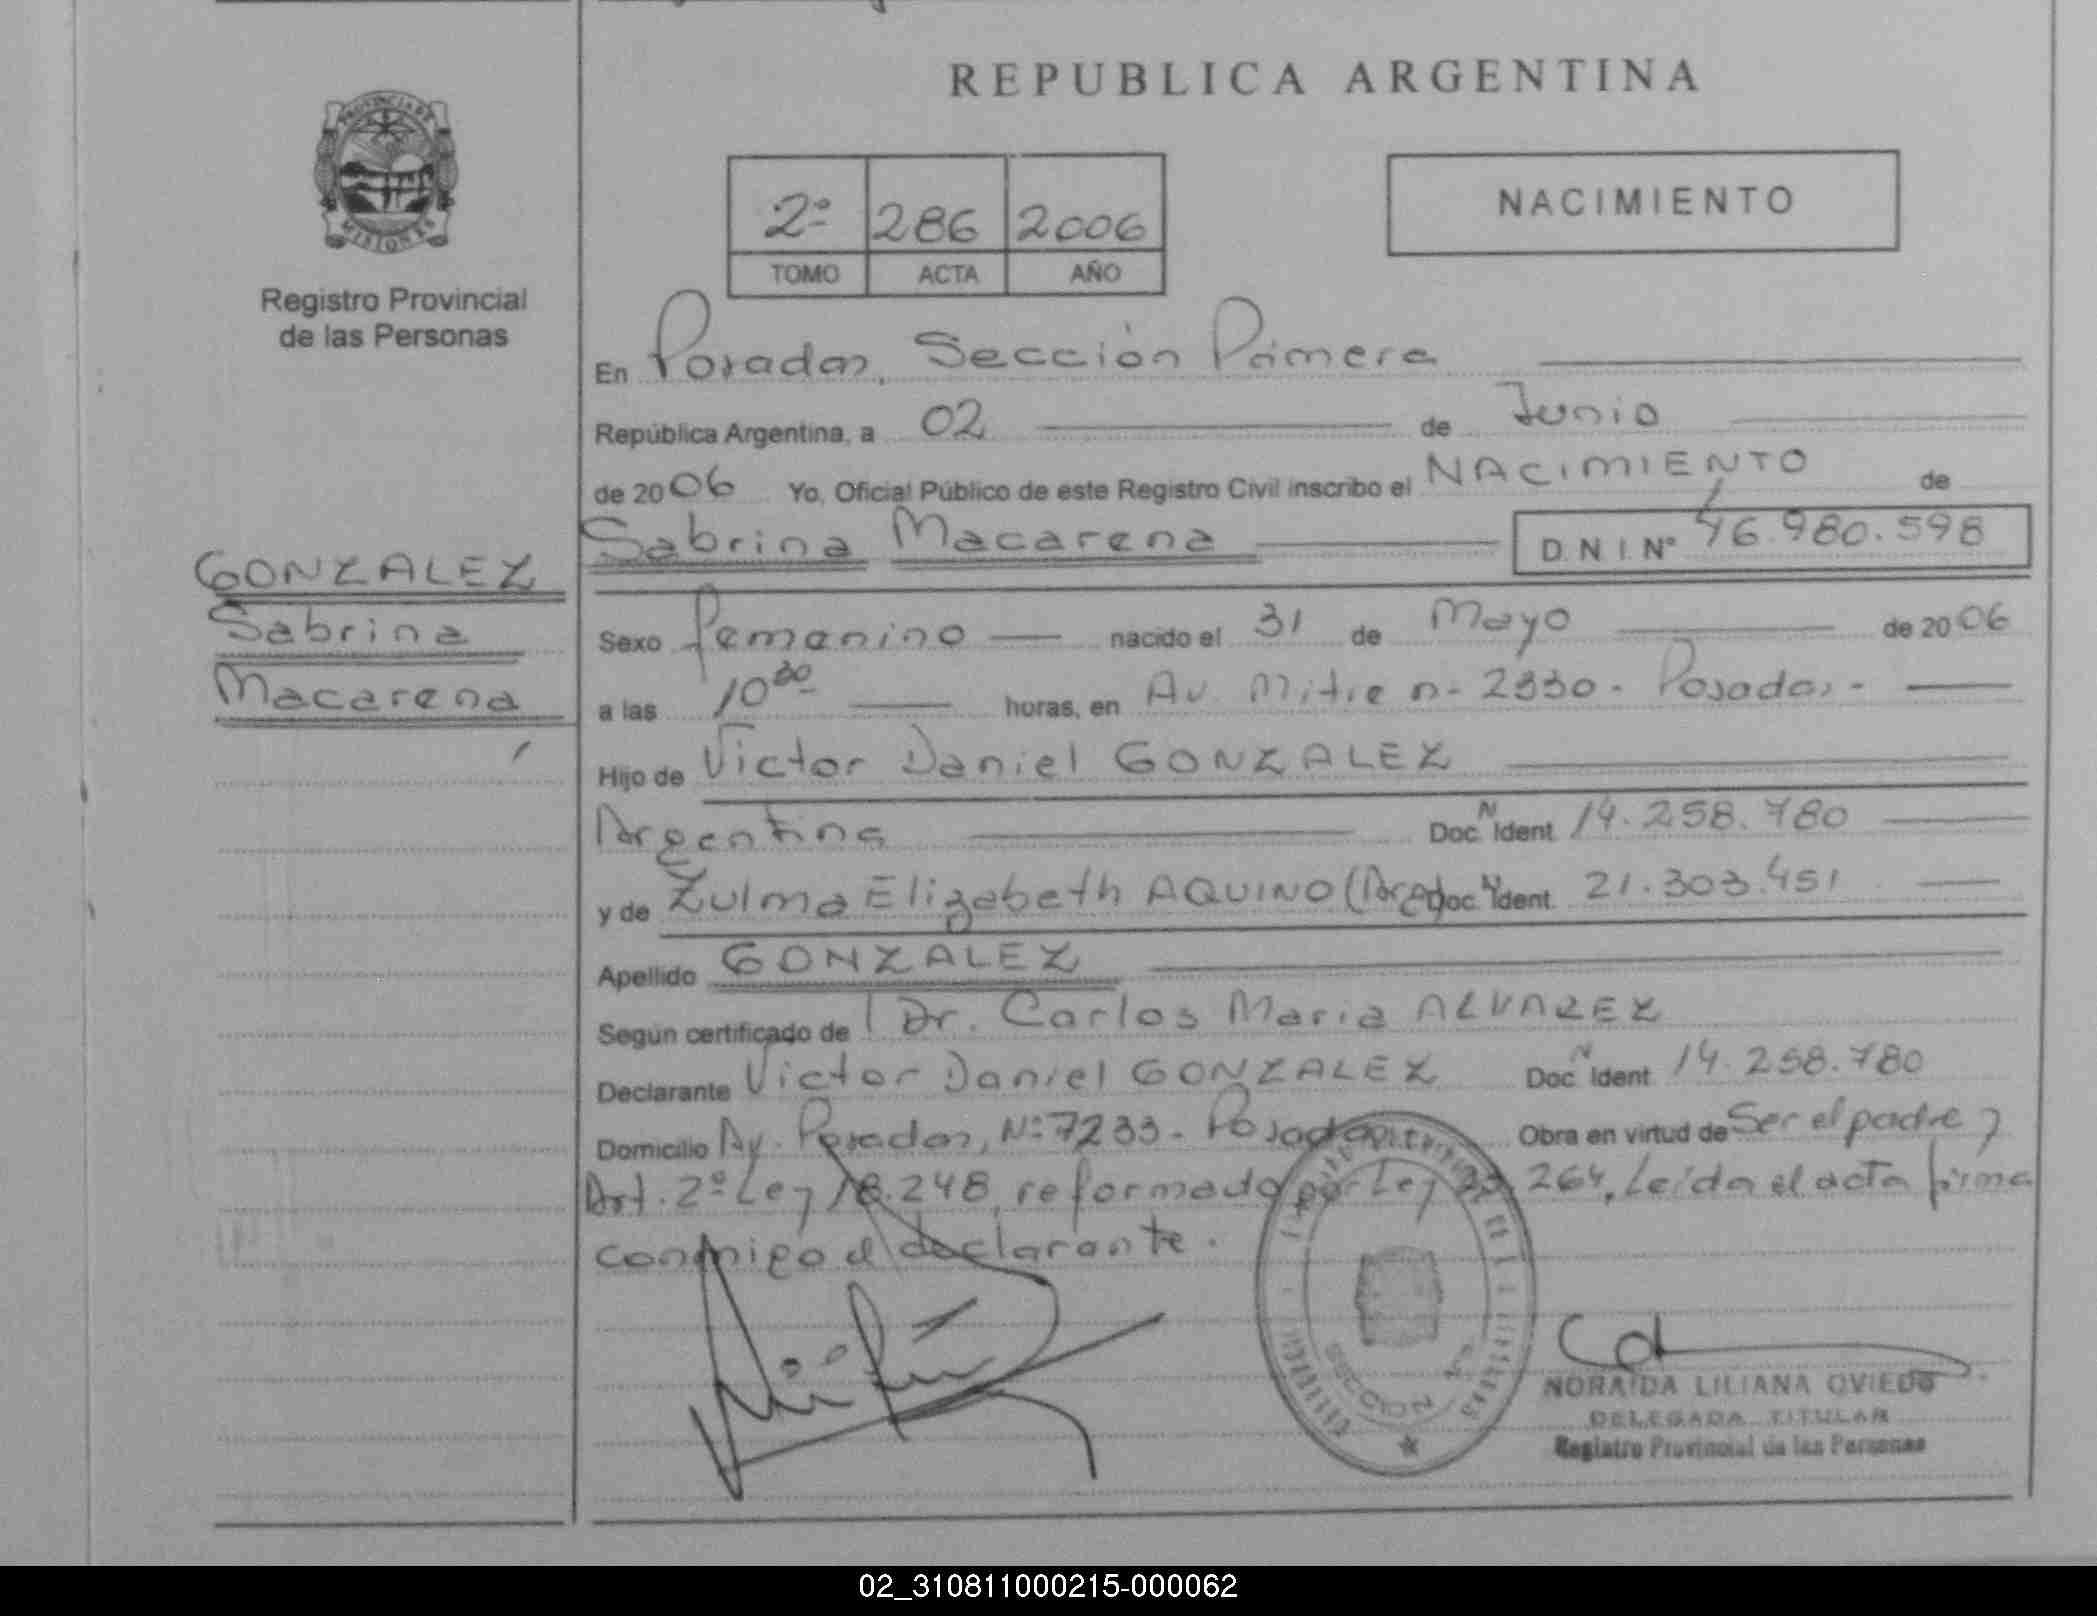 REPUBLICA ARGENTINA
PROVINCIA DE
MISIONES
Registro Provincial
de las Personas
2º 286 2006
TOMO ACTA AÑO
NACIMIENTO
En Posadas, Sección Primera
República Argentina, a 02 de Junio
de 2006 Yo, Oficial Público de este Registro Civil inscribo el NACIMIENTO de
Sabrina Macarena D.N.I. Nº 46.980.598
GONZALEZ
Sabrina
Macarena
Sexo femenino nacido el 31 de Mayo de 2006
a las 10 30 horas, en Av. Mitre n- 2330 - Posadas -
Hijo de Victor Daniel GONZALEZ
Argentina Doc. N Ident 14.258.780
y de Zulma Elizabeth AQUINO (Arg) Doc. N Ident. 21.303.451
Apellido GONZALEZ
Según certificado de Dr. Carlos Maria ALVAREZ
Declarante Victor Daniel GONZALEZ Doc N Ident 14.258.780
Domicilio Av. Posadas, Nº 7233 - Posadas Obra en virtud de Ser el padre y
Art. 2º Ley 18.248, reformado por Ley 23.264, Leída el acta firma
conmigo el declarante.
SECCION
NORAIDA LILIANA OVIEDO
DELEGADA TITULAR
Registro Provincial de las Personas
02_310811000215-000062